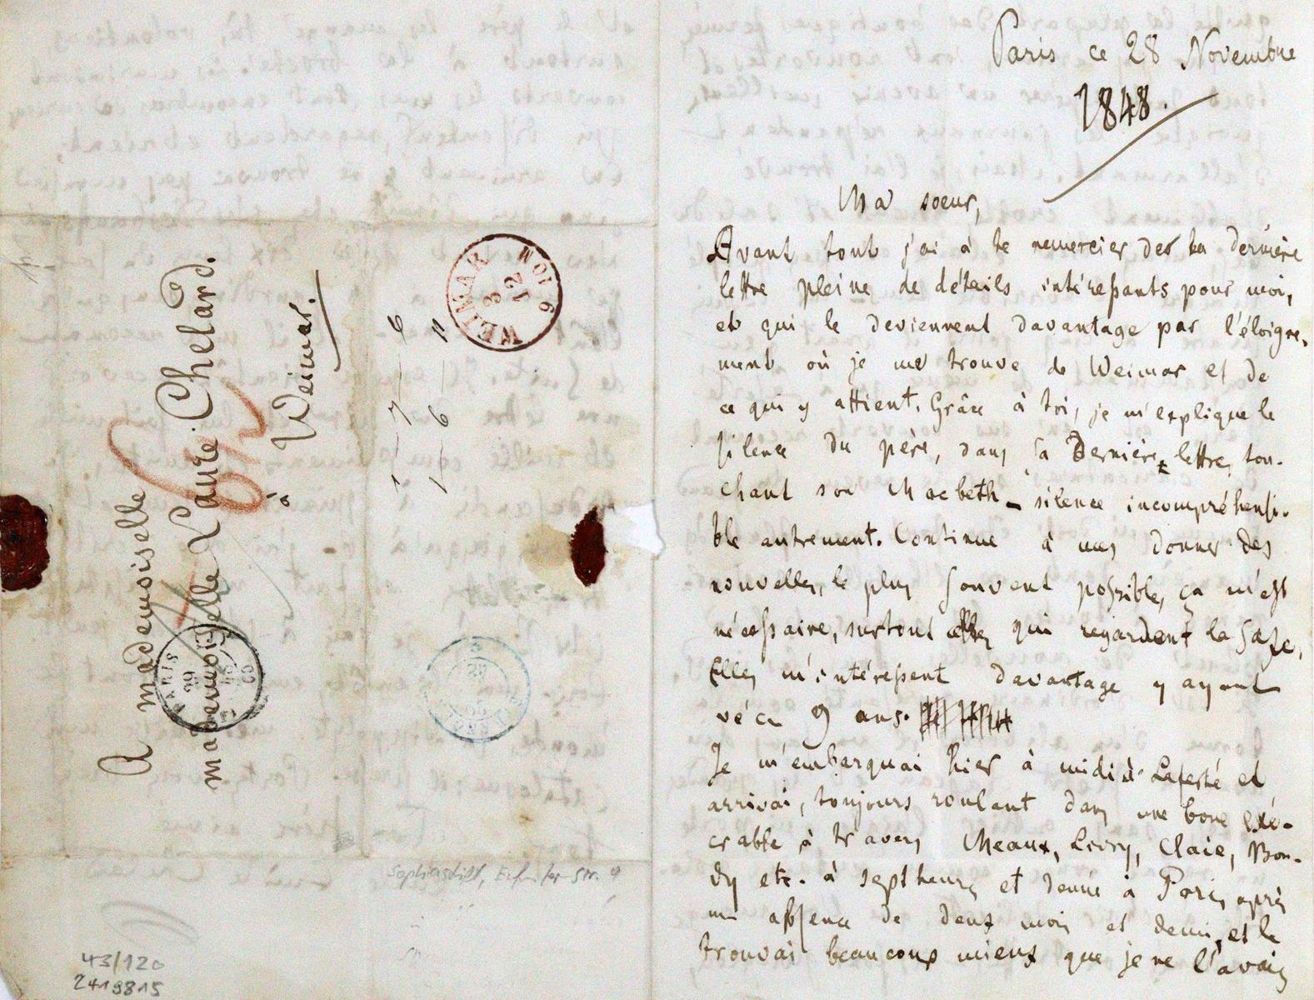 Paris ce 28 Novembre
1848.
Ma soeur,
Avant tout j'ai à te remercier de ta dernière
lettre pleine de détails intéressants pour moi,
et qui le deviennent davantage par l'éloigne-
ment où je me trouve de Weimar et de
ce qui y attient. Grâce à toi, je m'explique le
silence du père, dans sa dernière lettre, tou-
chant son Macbeth – silence incompréhensi-
ble autrement. Continue à me donner des
nouvelles, le plus souvent possible, ça m'est
nécessaire, surtout celles qui regardent la
Elles m'intéressent davantage y ayant
vécu 9 ans.
Je m'embarquai hier à midi à Laferté et
arrivai, toujours roulant dans une boue exé-
crable à travers Meaux, Livry, Claie, Bon-
dy etc. à sept heures et demie à Paris, après
un absence de deux mois et demi, et le
trouvai beaucoup mieux que je ne l'avais
A mademoiselle
mademoiselle Laure Chelard.
à
Weimar.
WEIMAR
PARIS
43/120
2419815